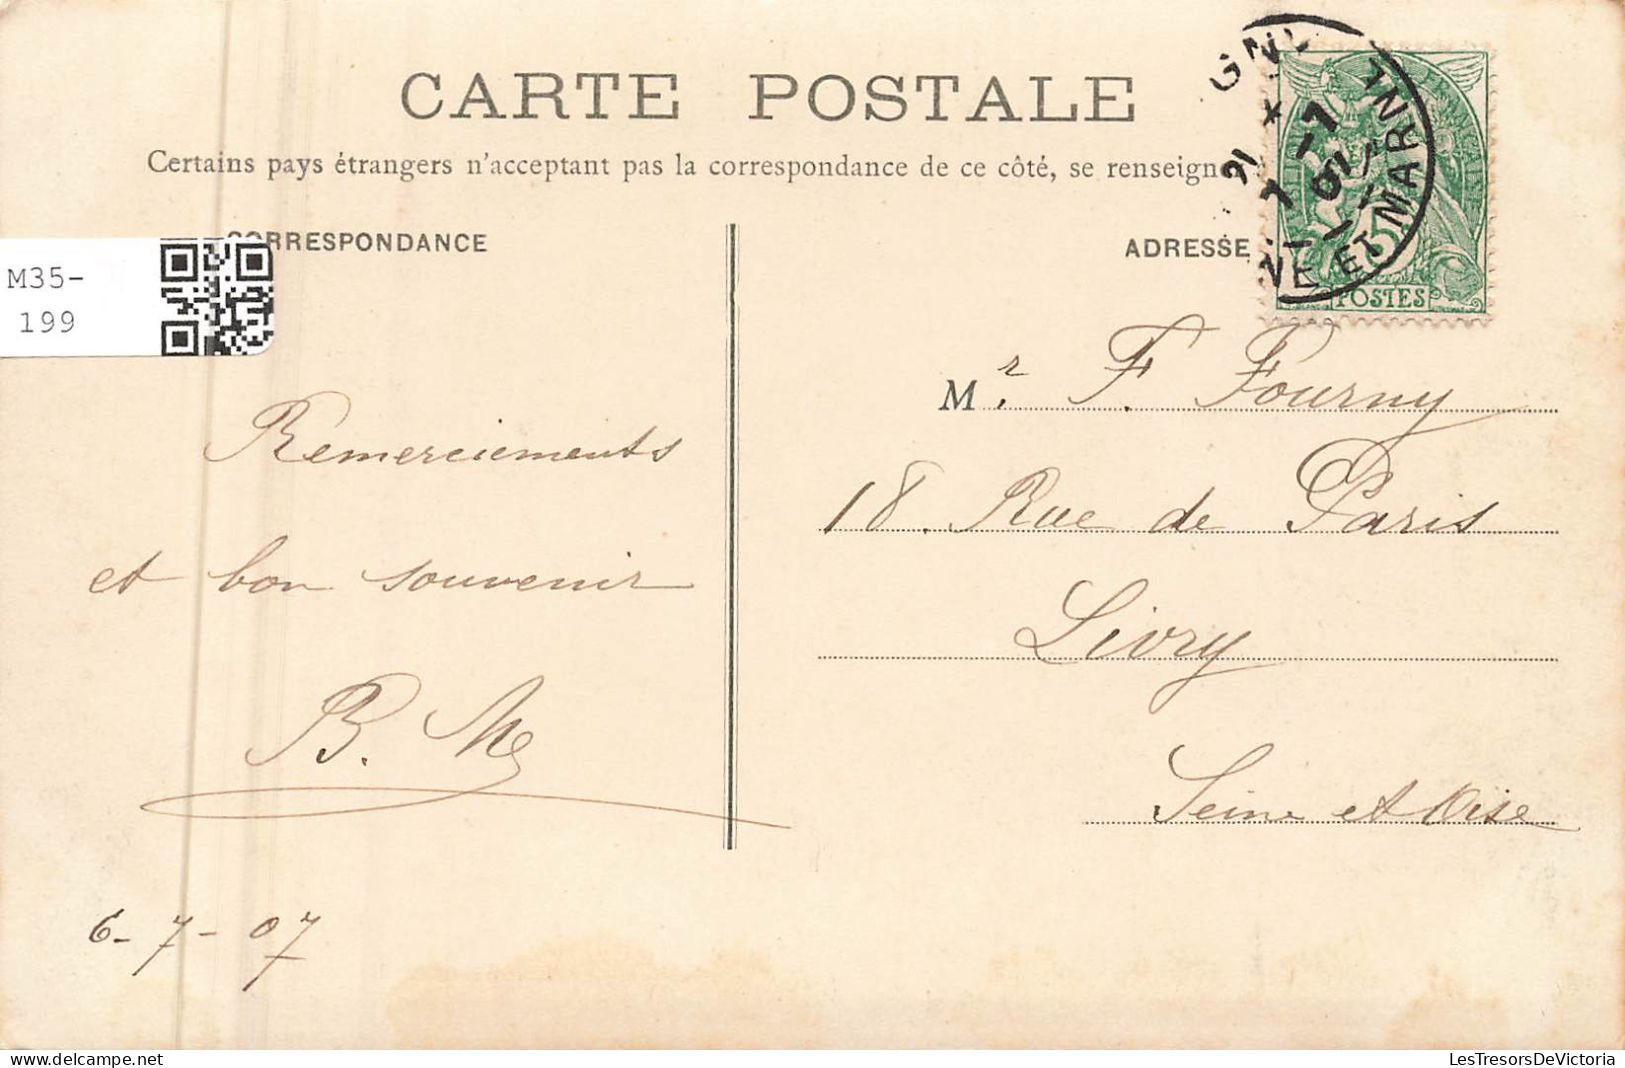 CARTE POSTALE
Certains pays étrangers n'acceptant pas la correspondance de ce côté, se renseigner
CORRESPONDANCE
ADRESSE
M35-
199
POSTES
ET MARNE
Remerciements
et bon souvenir
B.
6-7-07
Mr. F. Fourny
18. Rue de Paris
Livry
Seine et Oise
LesTresorsDeVictoria
delcampe.net